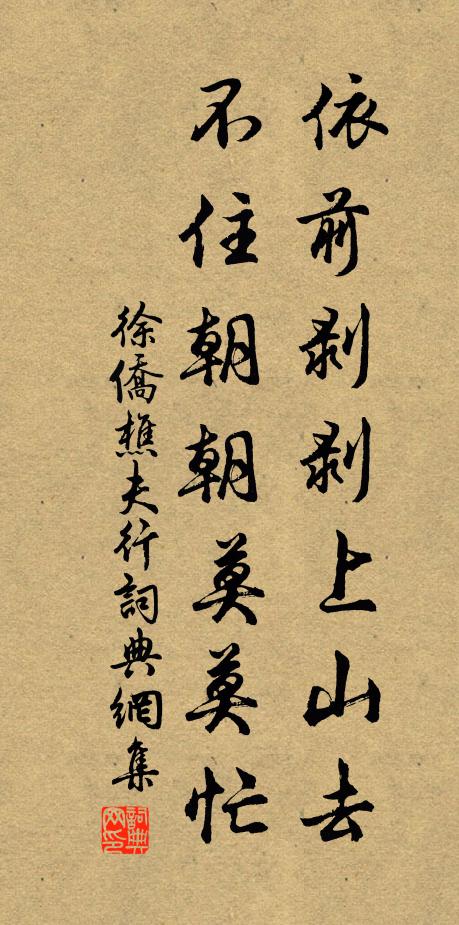 依前剥剥上山去
不住朝朝莫莫忙
徐僑樵夫行詞典網集
詞典网印